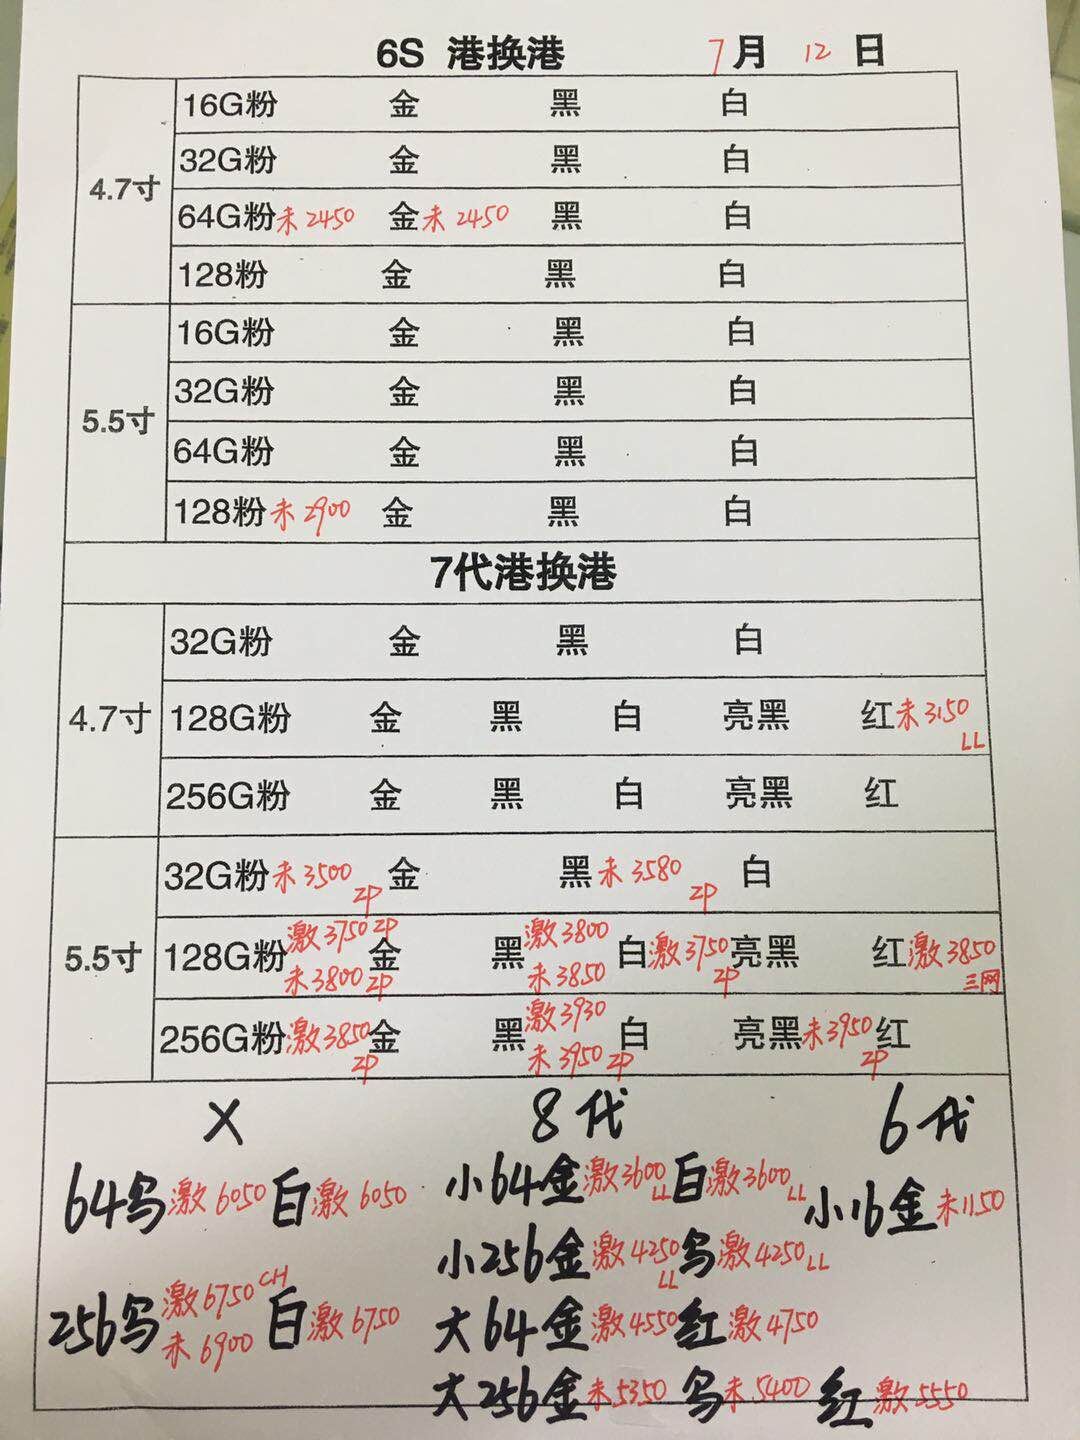 6S 港换港 7月 12 日
4.7寸
16G粉 金 黑 白
32G粉 金 黑 白
64G粉 未2450 金 未2450 黑 白
128粉 金 黑 白
5.5寸
16G粉 金 黑 白
32G粉 金 黑 白
64G粉 金 黑 白
128粉 未2900 金 黑 白
7代港换港
4.7寸
32G粉 金 黑 白
128G粉 金 黑 白 亮黑 红 未3150 LL
256G粉 金 黑 白 亮黑 红
5.5寸
32G粉 未3500 ZP 金 黑 未3580 ZP 白
128G粉 激3750 ZP 未3800 ZP 金 黑 激3800 未3850 白 激3750 ZP 亮黑 红 激3850 三网
256G粉 激3850 ZP 金 黑 激3930 未3950 ZP 白 亮黑 未3950 ZP 红
X 8代 6代
64乌 激6050 白 激6050 小64金 激3600 LL 白 激3600 LL 小16金 未1150
小256金 激4250 LL 乌 激4250 LL
256乌 激6750 CH 未6900 白 激6750 大64金 激4550 红 激4750
大256金 未5350 乌 未5400 红 激5550